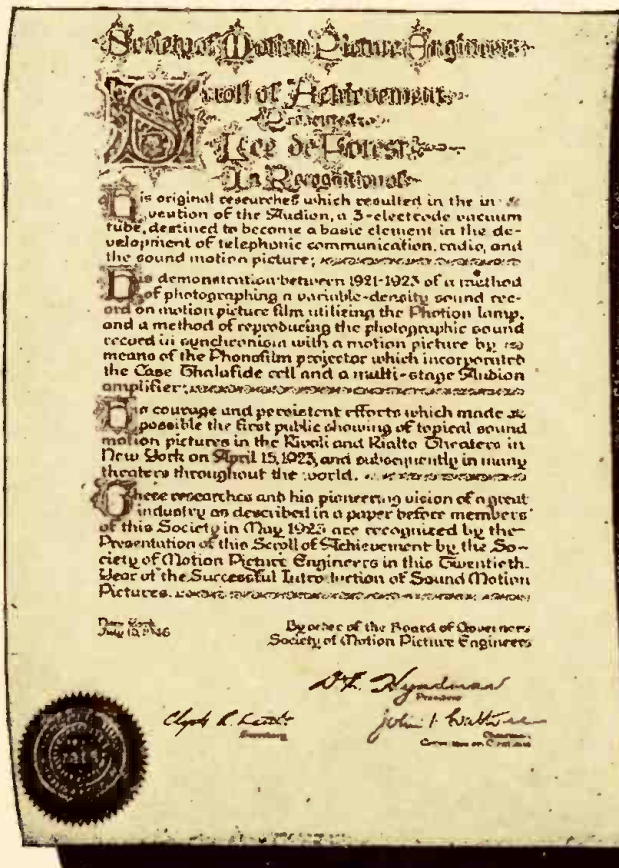 Society of Motion Picture Engineers
Scroll of Achievement
Presented to
Lee de Forest
In Recognition of
His original researches which resulted in the in-
vention of the Audion, a 3-electrode vacuum
tube, destined to become a basic element in the de-
velopment of telephonic communication, radio, and
the sound motion picture;
His demonstration between 1921-1923 of a method
of photographing a variable-density sound rec-
ord on motion picture film utilizing the Photion lamp,
and a method of reproducing the photographic sound
record in synchronism with a motion picture by
means of the Phonofilm projector which incorporated
the Case Thalofide cell and a multi-stage Audion
amplifier;
His courage and persistent efforts which made
possible the first public showing of topical sound
motion pictures in the Rivoli and Rialto Theaters in
New York on April 15, 1923, and subsequently in many
theaters throughout the world.
These researches and his pioneering vision of a great
industry as described in a paper before members
of this Society in May 1923 are recognized by the
Presentation of this Scroll of Achievement by the So-
ciety of Motion Picture Engineers in this Twentieth
Year of the Successful Introduction of Sound Motion
Pictures.
New York
July 10, 1946
By order of the Board of Governors
Society of Motion Picture Engineers
President
Secretary
Chairman
Committee on Citations